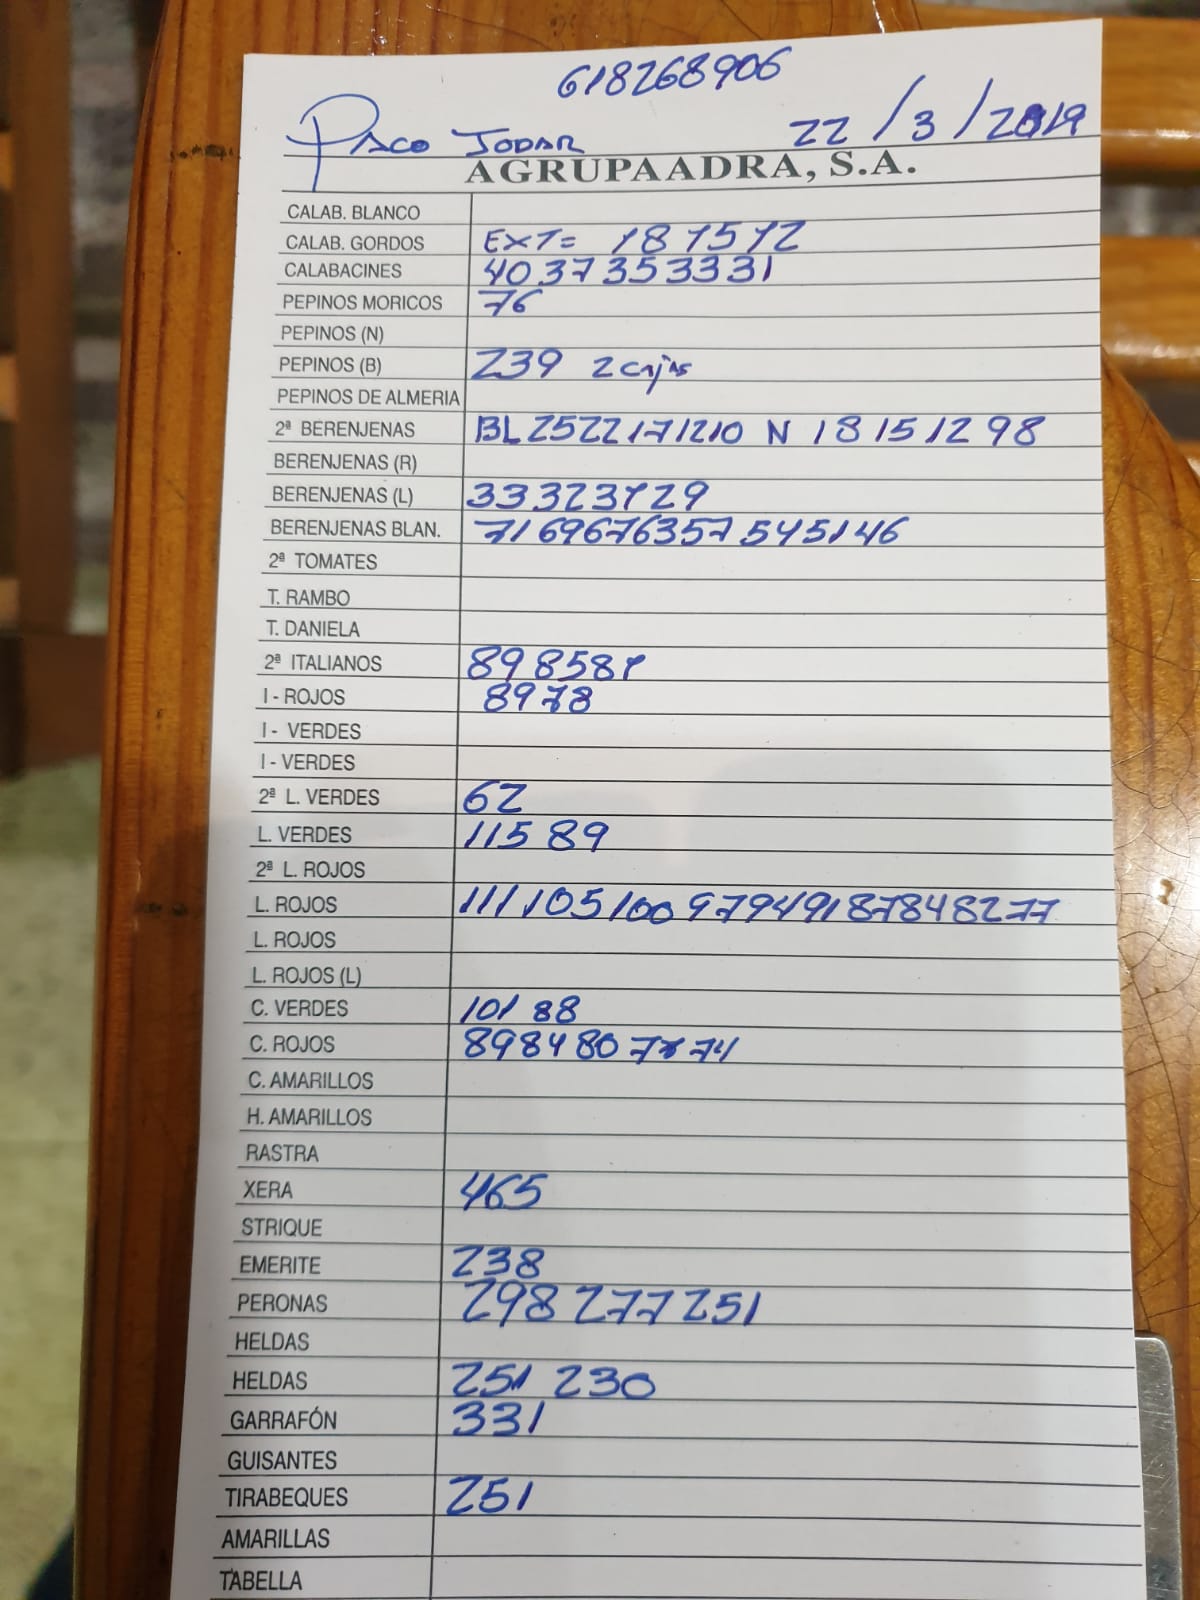 618268906
PACO JODAR 22/3/2019
AGRUPAADRA, S.A.
CALAB. BLANCO
CALAB. GORDOS EXT= 187572
CALABACINES 4037353331
PEPINOS MORICOS 76
PEPINOS (N)
PEPINOS (B) 239 2 cajas
PEPINOS DE ALMERIA
2ª BERENJENAS BL 2522171210 N 18151298
BERENJENAS (R)
BERENJENAS (L) 33323129
BERENJENAS BLAN. 716967635754545146
2ª TOMATES
T. RAMBO
T. DANIELA
2ª ITALIANOS 898581
I - ROJOS 8978
I - VERDES
I - VERDES
2ª L. VERDES 62
L. VERDES 115 89
2ª L. ROJOS
L. ROJOS 11110510097949187848277
L. ROJOS
L. ROJOS (L)
C. VERDES 101 88
C. ROJOS 898480 74
C. AMARILLOS
H. AMARILLOS
RASTRA
XERA 465
STRIQUE
EMERITE 238
PERONAS 298 277 251
HELDAS
HELDAS 251 230
GARRAFÓN 331
GUISANTES
TIRABEQUES 251
AMARILLAS
TABELLA